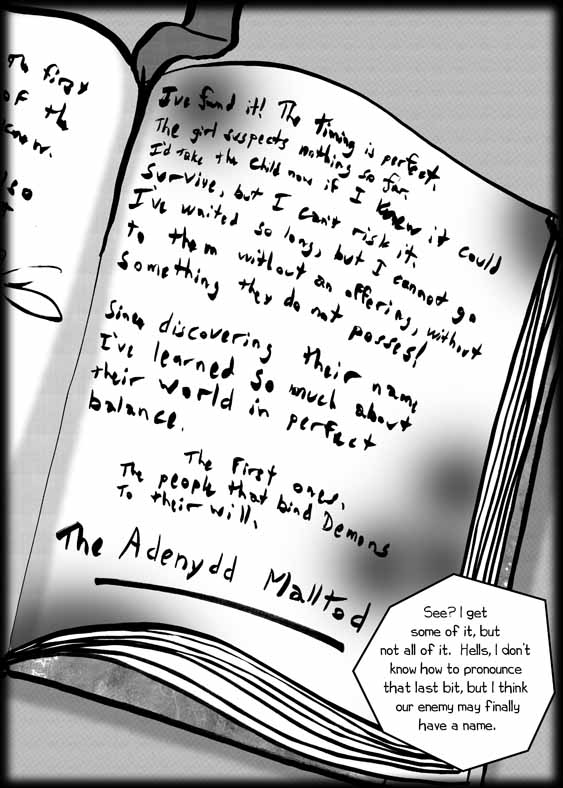 The first
of the
know.
I've found it! The timing is perfect.
The girl suspects nothing so far.
I'd take the child now if I knew it could
survive, but I can't risk it.
I've waited so long, but I cannot go
to them without an offering, without
something they do not posses!
Since discovering their name
I've learned so much about
their world in perfect
balance.
The First ones.
The people that bind Demons
To their will.
The Adenydd Malltod
See? I get
some of it, but
not all of it. Hells, I don't
know how to pronounce
that last bit, but I think
our enemy may finally
have a name.